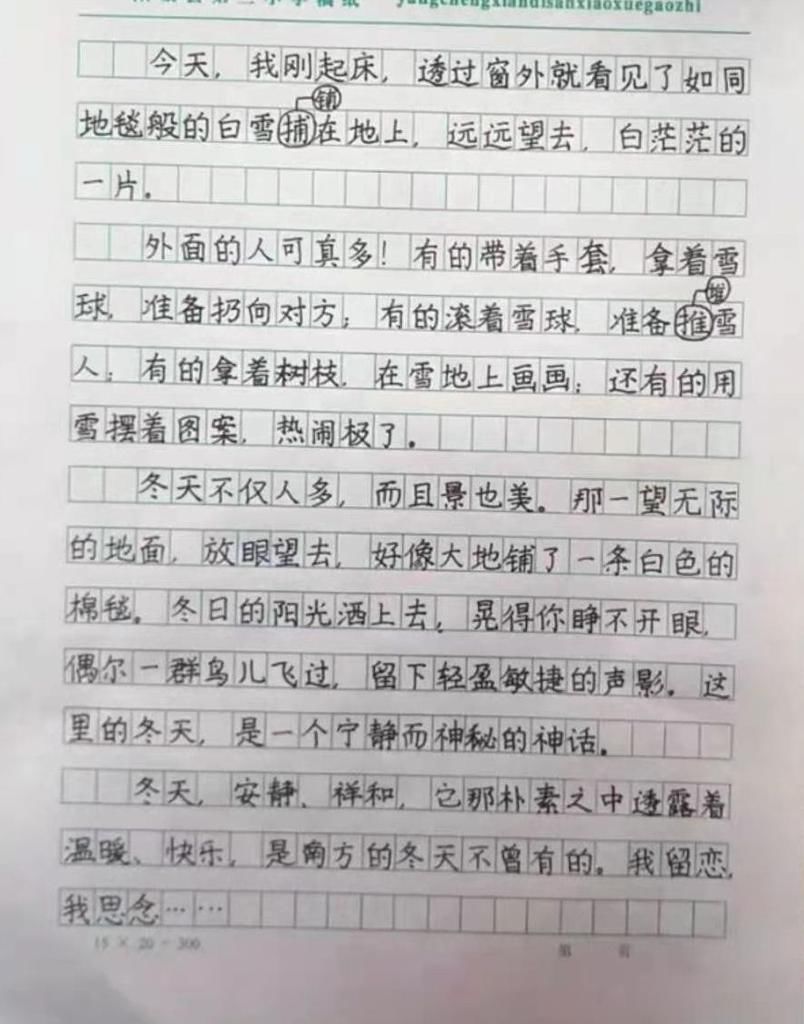 yangchengxiandisanxiaoxuegaozhi
今天，我刚起床，透过窗外就看见了如同
铺
地毯般的白雪捕在地上，远远望去，白茫茫的
一片。
外面的人可真多！有的带着手套，拿着雪
堆
球，准备扔向对方；有的滚着雪球，准备推雪
人；有的拿着树枝，在雪地上画画；还有的用
雪摆着图案，热闹极了。
冬天不仅人多，而且景也美。那一望无际
的地面，放眼望去，好像大地铺了一条白色的
棉毯。冬日的阳光洒上去，晃得你睁不开眼，
偶尔一群鸟儿飞过，留下轻盈敏捷的声影。这
里的冬天，是一个宁静而神秘的神话。
冬天，安静、祥和，它那朴素之中透露着
温暖、快乐，是南方的冬天不曾有的。我留恋，
我思念……
15 × 20 = 300
第 页